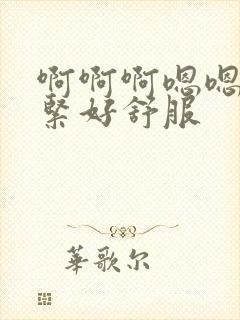 啊啊啊嗯嗯
紧好舒服
華歌尔